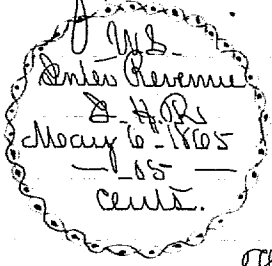 U.S.
Inter Revenue
D. H. R.
May 6 - 1865
15
cents.